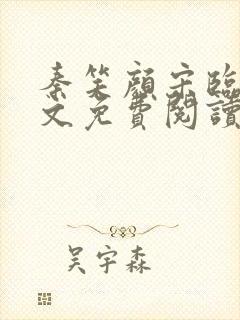 秦笑顏宋臨
文免費閱讀
吴宇森